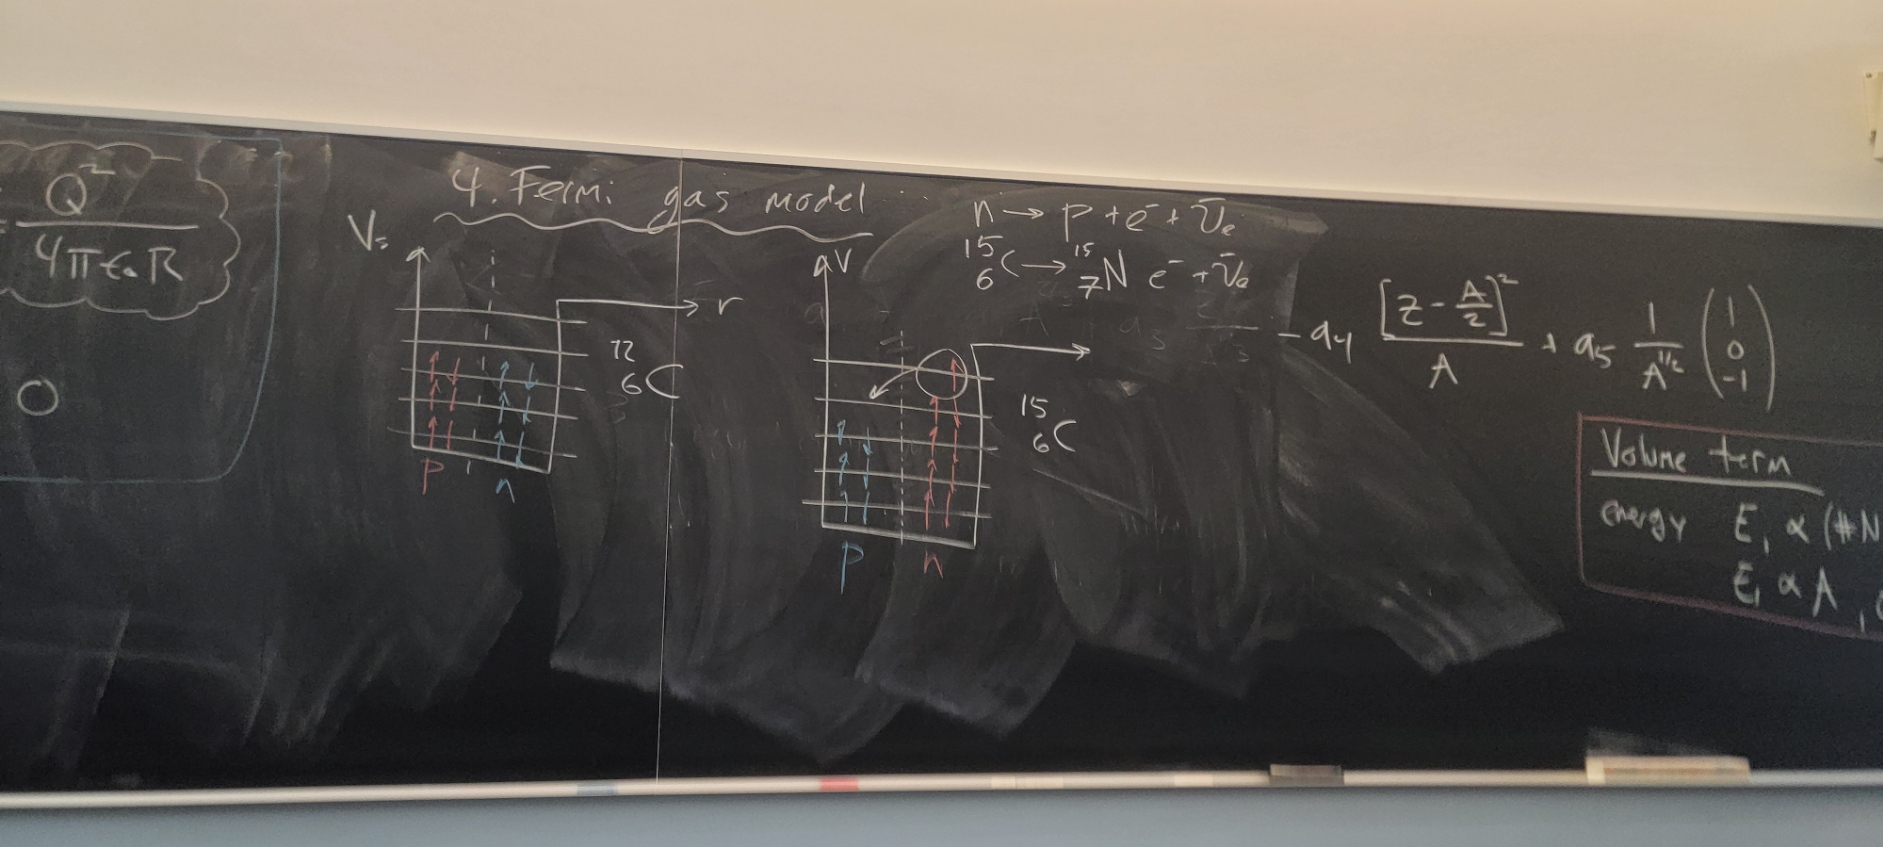 Q²
4πε₀R
O
4. Fermi gas model
V=
r
12
6C
p
n
V
n → p + e⁻ + ν̄e
15 6C → 15 7N e⁻ + ν̄e
15
6C
p
n
- a4 [Z - A/2]² / A + a5 1/A^1/2 (1 0 -1)
Volume term
energy E₁ ∝ (#N
E₁ ∝ A,